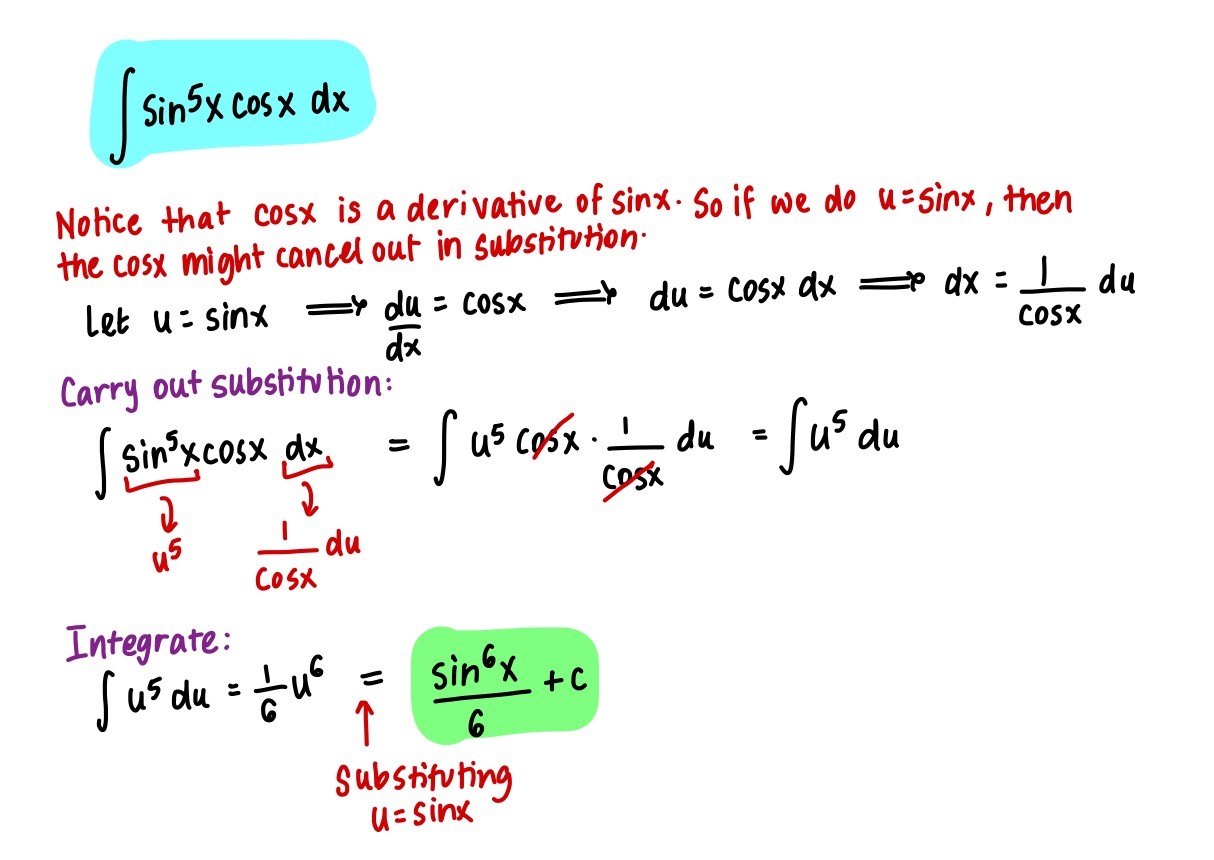 ∫ sin⁵x cosx dx
Notice that cosx is a derivative of sinx. So if we do u=sinx, then
the cosx might cancel out in substitution.
Let u = sinx ⟹ du/dx = cosx ⟹ du = cosx dx ⟹ dx = 1/cosx du
Carry out substitution:
∫ sin⁵x cosx dx = ∫ u⁵ cosx · 1/cosx du = ∫ u⁵ du
u⁵ 1/cosx du
Integrate:
∫ u⁵ du = 1/6 u⁶ = sin⁶x/6 + c
Substituting
u=sinx